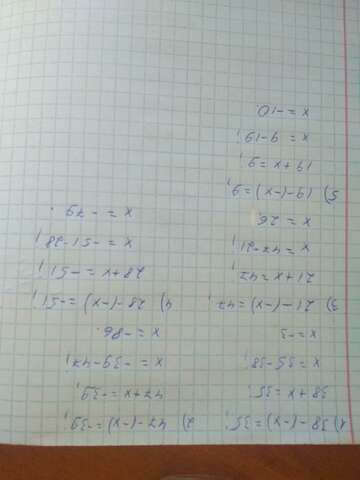 1) 38-(-x)=35;
38+x=35;
x=35-38;
x=-3
2) 47-(-x)=-39;
47+x=-39;
x=-39-47;
x=-86.
3) 21-(-x)=47;
21+x=47;
x=47-21;
x=26.
4) 28-(-x)=-51;
28+x=-51;
x=-51-28;
x=-79.
5) 19-(-x)=9;
19+x=9;
x=9-19;
x=-10.